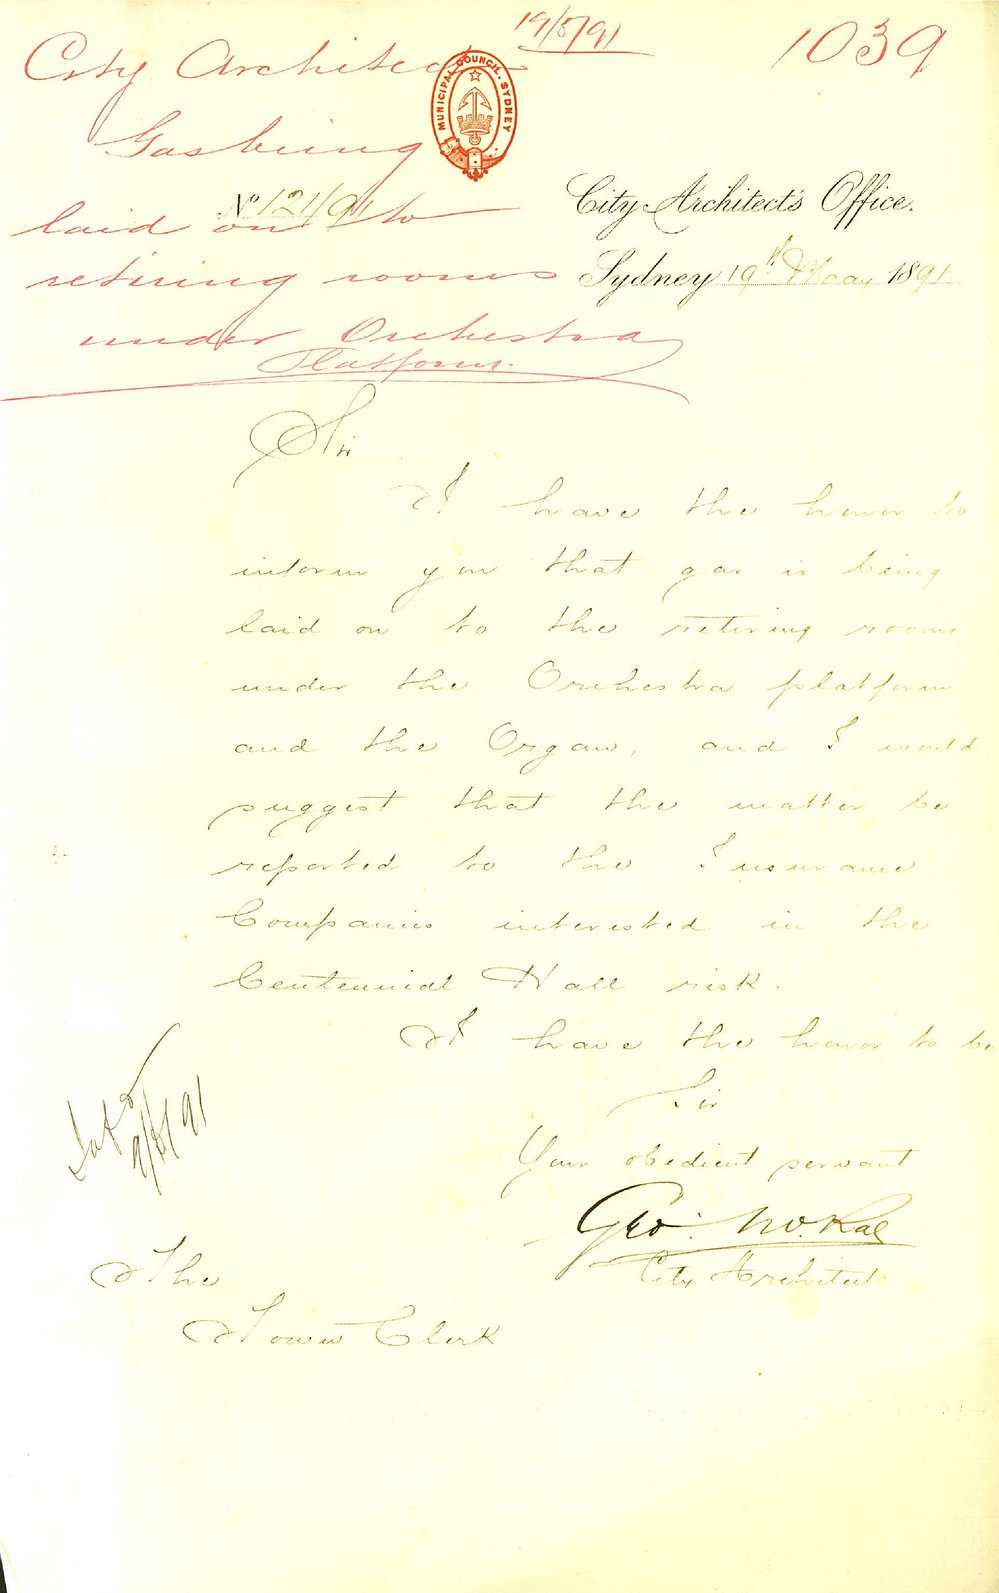 19/5/91
1039
City Architect
MUNICIPAL COUNCIL. SYDNEY
Gas being
No 121/91
laid on to
retiring rooms
under Orchestra
Platform.
City Architect's Office.
Sydney 19th May 1891
Sir
I have the honor to
inform you that gas is being
laid on to the retiring rooms
under the Orchestra platform
and the Organ, and I would
suggest that the matter be
reported to the Insurance
Companies interested in the
Centennial Hall risk.
I have the honor to be
Sir
Your obedient servant
Geo: McRae
City Architect.
The
Town Clerk